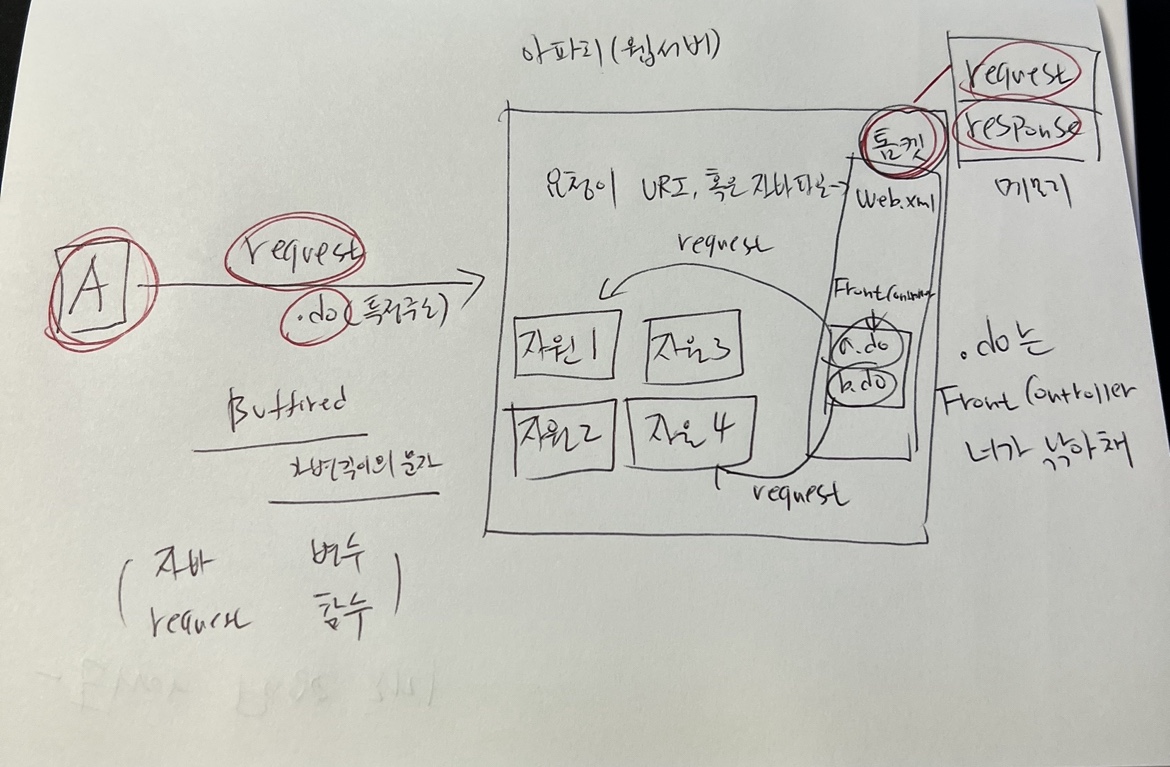 아파치(웹서버)
request
response
메모리
톰켓
요청이 URI, 혹은 자바파일→
Web.xml
A
request
.do(특정주소)
request
자원1
자원3
자원2
자원4
a.do
b.do
request
.do는
Front Controller
너가 낚아채
Buffired
가변길이의 문자
자바 변수
request 함수